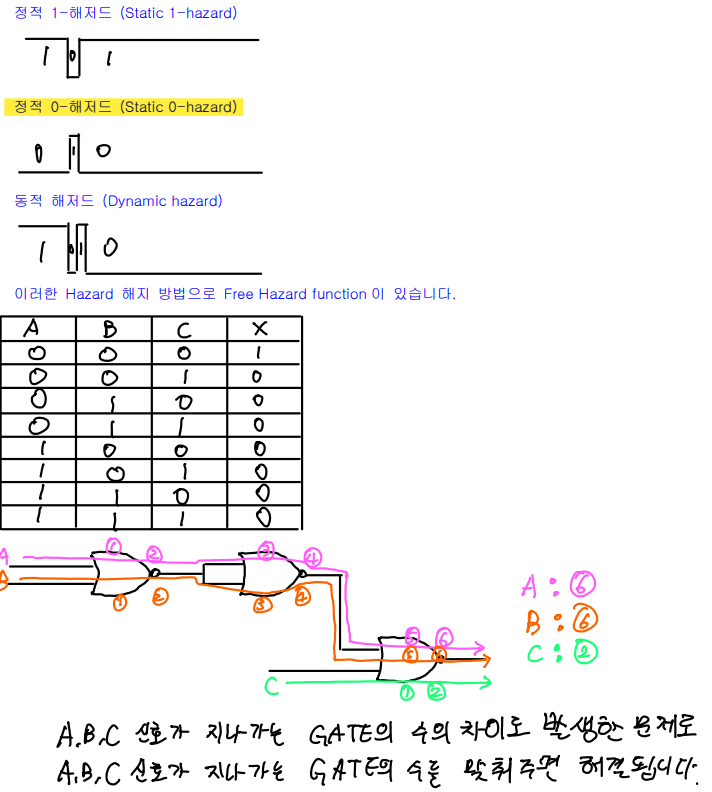 정적 1-해저드 (Static 1-hazard)
1 0 1
정적 0-해저드 (Static 0-hazard)
0 1 0
동적 해저드 (Dynamic hazard)
1 0 1 0
이러한 Hazard 해지 방법으로 Free Hazard function이 있습니다.
A B C X
0 0 0 1
0 0 1 0
0 1 0 0
0 1 1 0
1 0 0 0
1 0 1 0
1 1 0 0
1 1 1 0
A ① ② ③ ④
B ① ② ③ ④
A : ⑥
B : ⑥
C : ②
⑤ ⑥
⑤ ⑥
C ① ②
A,B,C 신호가 지나가는 GATE의 수의 차이로 발생한 문제로
A,B,C 신호가 지나가는 GATE의 수를 맞춰주면 해결됩니다.